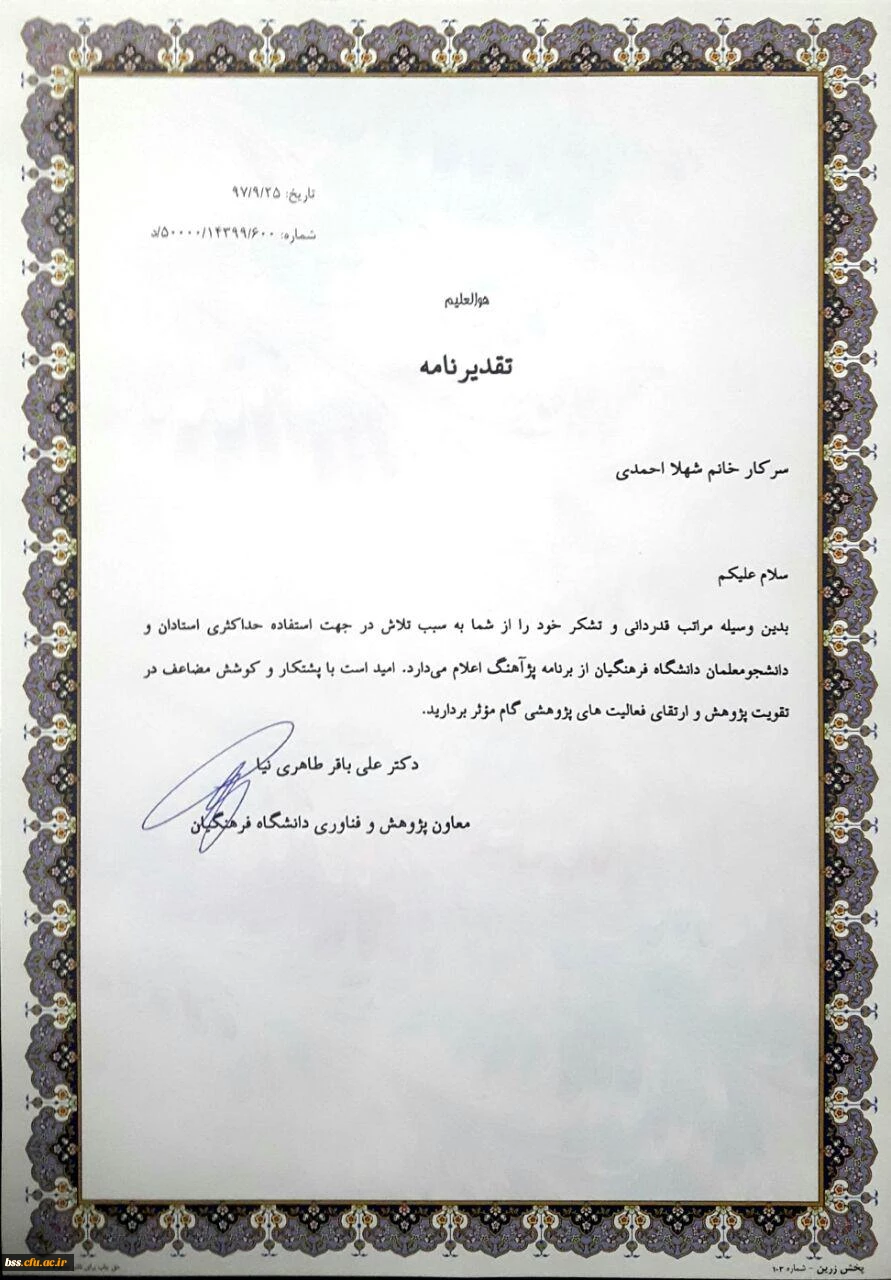 تاریخ: ۹۷/۹/۲۵
شماره: ۵۰۰۰۰/۱۴۳۹۹/۶۰۰/د
هوالعلیم
تقدیرنامه
سرکار خانم شهلا احمدی
سلام علیکم
بدین وسیله مراتب قدردانی و تشکر خود را از شما به سبب تلاش در جهت استفاده حداکثری استادان و
دانشجومعلمان دانشگاه فرهنگیان از برنامه پژآهنگ اعلام می‌دارد. امید است با پشتکار و کوشش مضاعف در
تقویت پژوهش و ارتقای فعالیت های پژوهشی گام مؤثر بردارید.
دکتر علی باقر طاهری نیا
معاون پژوهش و فناوری دانشگاه فرهنگیان
پخش زرین - شماره ۱۰۳
حق چاپ برای
bss.cfu.ac.ir